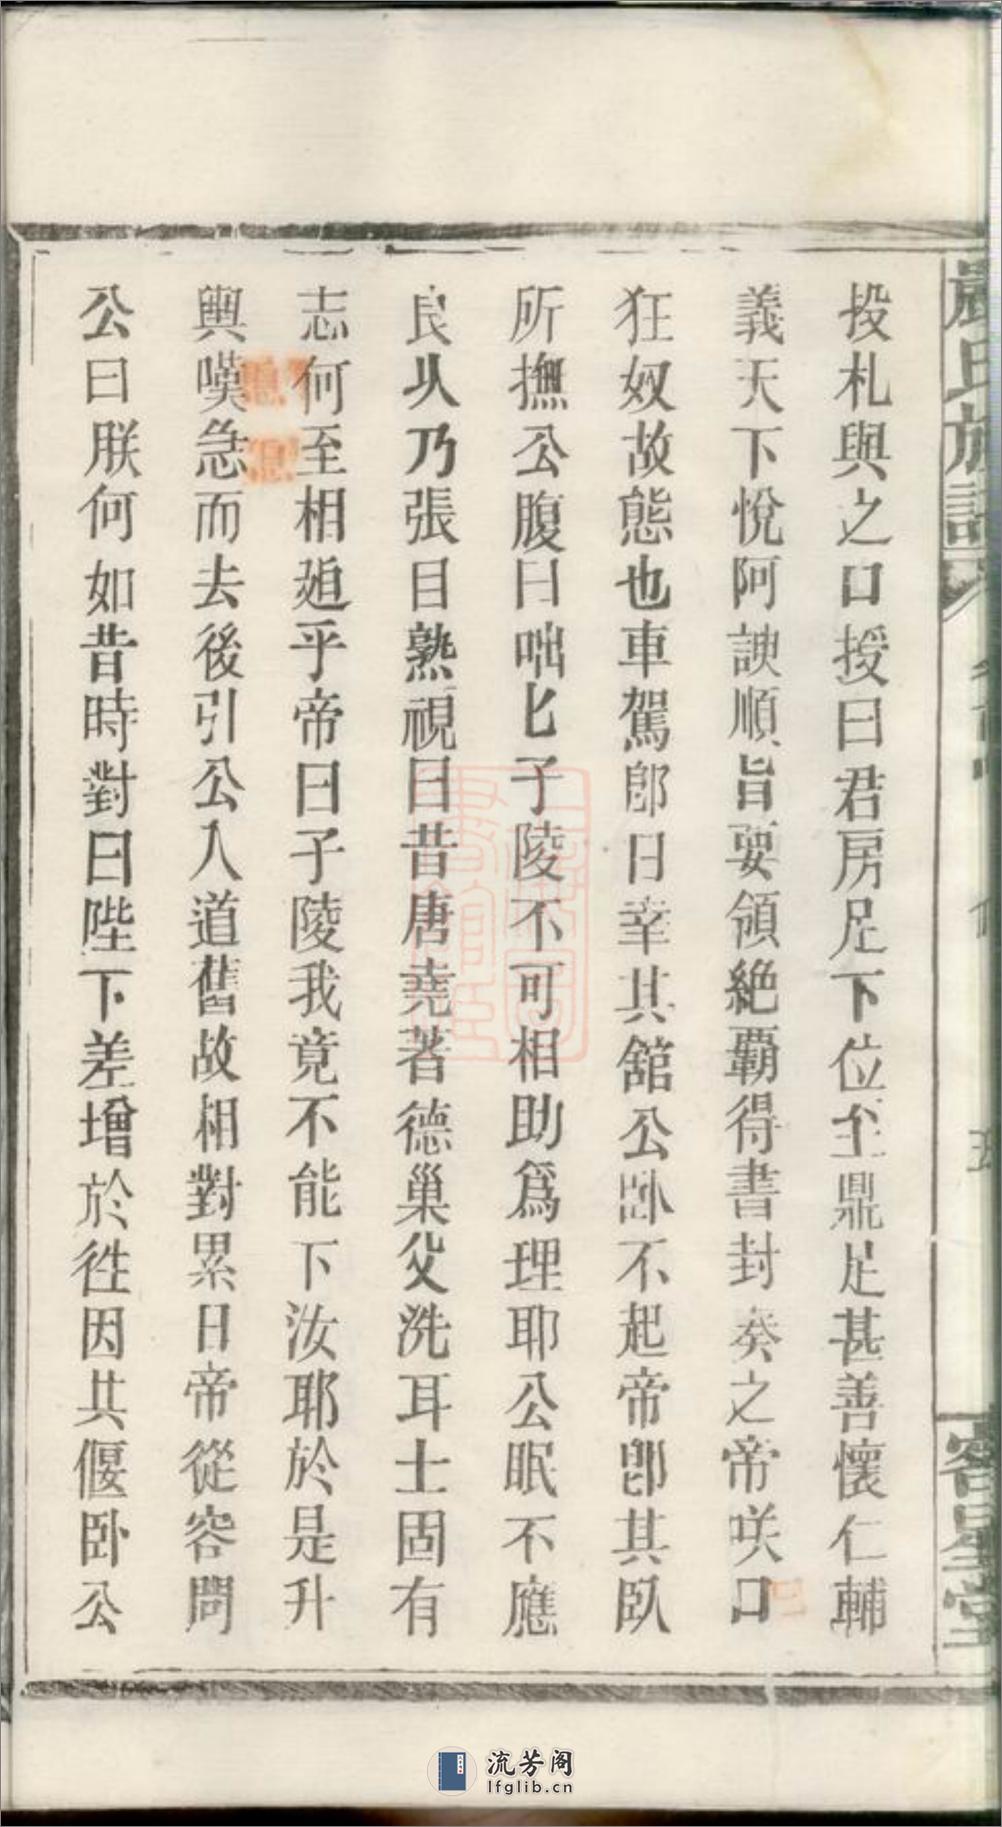 嚴氏族譜
客星堂
投札與之口授曰君房足下位至鼎足甚善懷仁輔
義天下悅阿諛順旨要領絕覇得書封奏之帝咲口
狂奴故態也車駕郎日幸其舘公卧不起帝卽其臥
所撫公腹曰咄匕子陵不可相助爲理耶公眠不應
良乆乃張目熟視曰昔唐堯著德巢父洗耳士固有
志何至相廹乎帝曰子陵我竟不能下汝耶於是升
輿嘆急而去後引公入道舊故相對累日帝從容問
公曰朕何如昔時對曰陛下差增於徃因共偃卧公
流芳阁
lfglib.cn